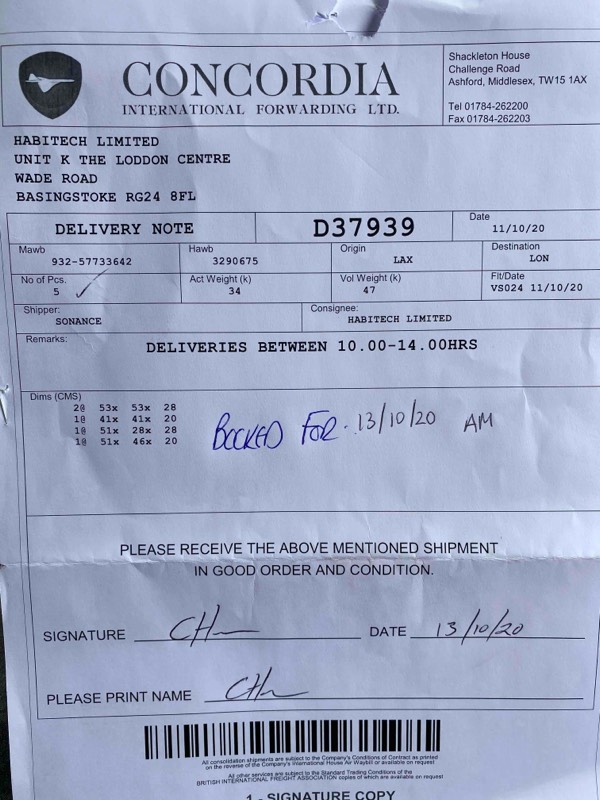 CONCORDIA
INTERNATIONAL FORWARDING LTD.
Shackleton House
Challenge Road
Ashford, Middlesex, TW15 1AX
Tel 01784-262200
Fax 01784-262203
HABITECH LIMITED
UNIT K THE LODDON CENTRE
WADE ROAD
BASINGSTOKE RG24 8FL
DELIVERY NOTE D37939 Date 11/10/20
Mawb Hawb Origin Destination
932-57733642 3290675 LAX LON
No of Pcs. Act Weight (k) Vol Weight (k) Flt/Date
5 34 47 VS024 11/10/20
Shipper: Consignee:
SONANCE HABITECH LIMITED
Remarks:
DELIVERIES BETWEEN 10.00-14.00HRS
Dims (CMS)
2@ 53x 53x 28
1@ 41x 41x 20
1@ 51x 28x 28
1@ 51x 46x 20
BOOKED FOR. 13/10/20 AM
PLEASE RECEIVE THE ABOVE MENTIONED SHIPMENT
IN GOOD ORDER AND CONDITION.
SIGNATURE DATE 13/10/20
PLEASE PRINT NAME
All consolidation shipments are subject to the Company's Conditions of Contract as printed
on the reverse of the Company's International House Air Waybill or available on request
All other services are subject to the Standard Trading Conditions of the
BRITISH INTERNATIONAL FREIGHT ASSOCIATION copies of which are available on request
1 - SIGNATURE COPY